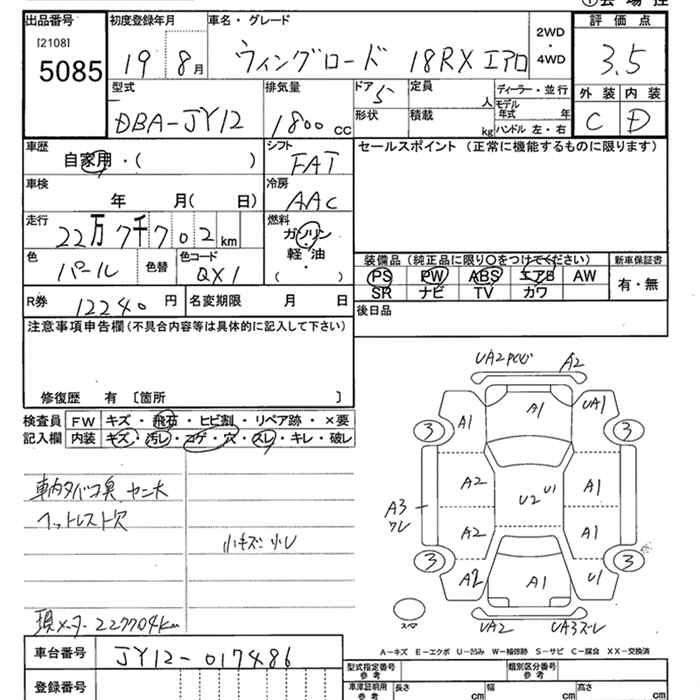 出品番号 初度登録年月 車名・グレード 2WD 評価点
[2108] 5085 19 8月 ウィングロード 18RX エアロ ・4WD 3.5
型式 排気量 ドア 5 定員 人 ディーラー・並行 外装 内装
DBA-JY12 1800cc 形状 積載 kg モデル年式 年 ハンドル 左・右 C D
車歴 シフト セールスポイント(正常に機能するものに限ります)
自家用・( ) FAT
車検 冷房
年 月( 日) AAC
走行 燃料
22万7千702km ガソリン
色 色替 色コード 軽油 装備品(純正品に限り○をつけてください) 新車保証書
パール QX1 ( ) PS PW ABS エアB AW 有・無
SR ナビ TV カワ
R券 12240円 名変期限 月 日 後日品
注意事項申告欄(不具合内容等は具体的に記入して下さい)
修復歴 有 [箇所 ]
検査員 FW キズ・飛石・ヒビ割・リペア跡・×要
記入欄 内装 キズ・汚レ・コゲ・穴・スレ・キレ・破レ
UA2 A2
A1 A1 UA1
3 3
車内タバコ臭 ヤニ大 A2 U2 U1 A1
ヘットレスト欠 A3 ワレ
小キズ 小レ A2 A1
3 3
A2 A1 U1
現メーター 227704km スマ UA2 UA3ズレ
A-キズ E-エクボ U-凹み W-補修跡 S-サビ C-腐食 XX-交換済
車台番号 JY12-017486 型式指定番号 参考 類別区分番号 参考
登録番号 車庫証明用 参考 長さ cm 幅 cm 高さ cm